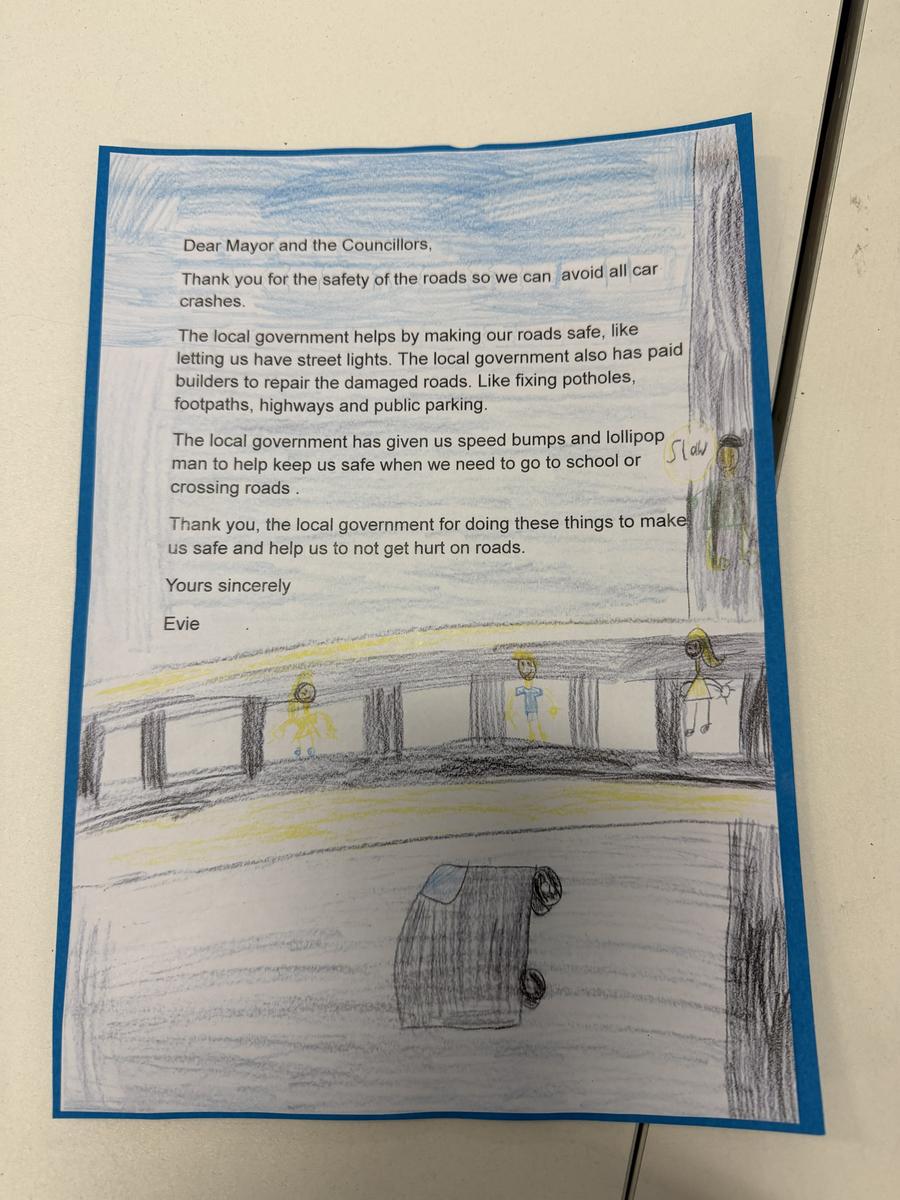 Dear Mayor and the Councillors,
Thank you for the safety of the roads so we can avoid all car
crashes.
The local government helps by making our roads safe, like
letting us have street lights. The local government also has paid
builders to repair the damaged roads. Like fixing potholes,
footpaths, highways and public parking.
The local government has given us speed bumps and lollipop
man to help keep us safe when we need to go to school or
crossing roads .
Thank you, the local government for doing these things to make
us safe and help us to not get hurt on roads.
Yours sincerely
Evie
Slow